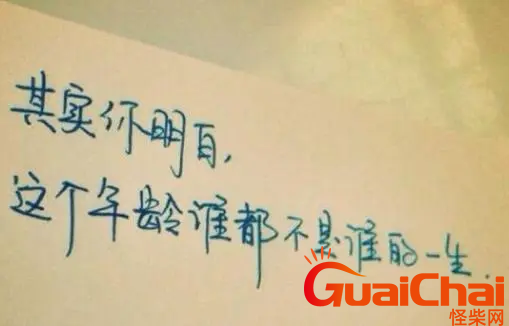 其实你明白,
这个年龄谁都不是谁的一生.
GuaiChai
怪柴网